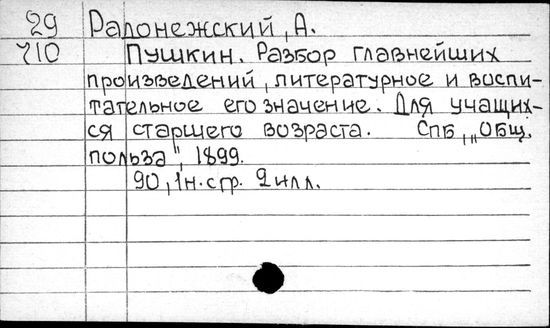 29 Радонежский, А.
710 Пушкин. Разбор главнейших
произведений, литературное и воспи-
тательное его значение. Для учащих-
ся старшего возраста. Спб, „Общ.
польза", 1899.
90, 1н. стр. 2 илл.